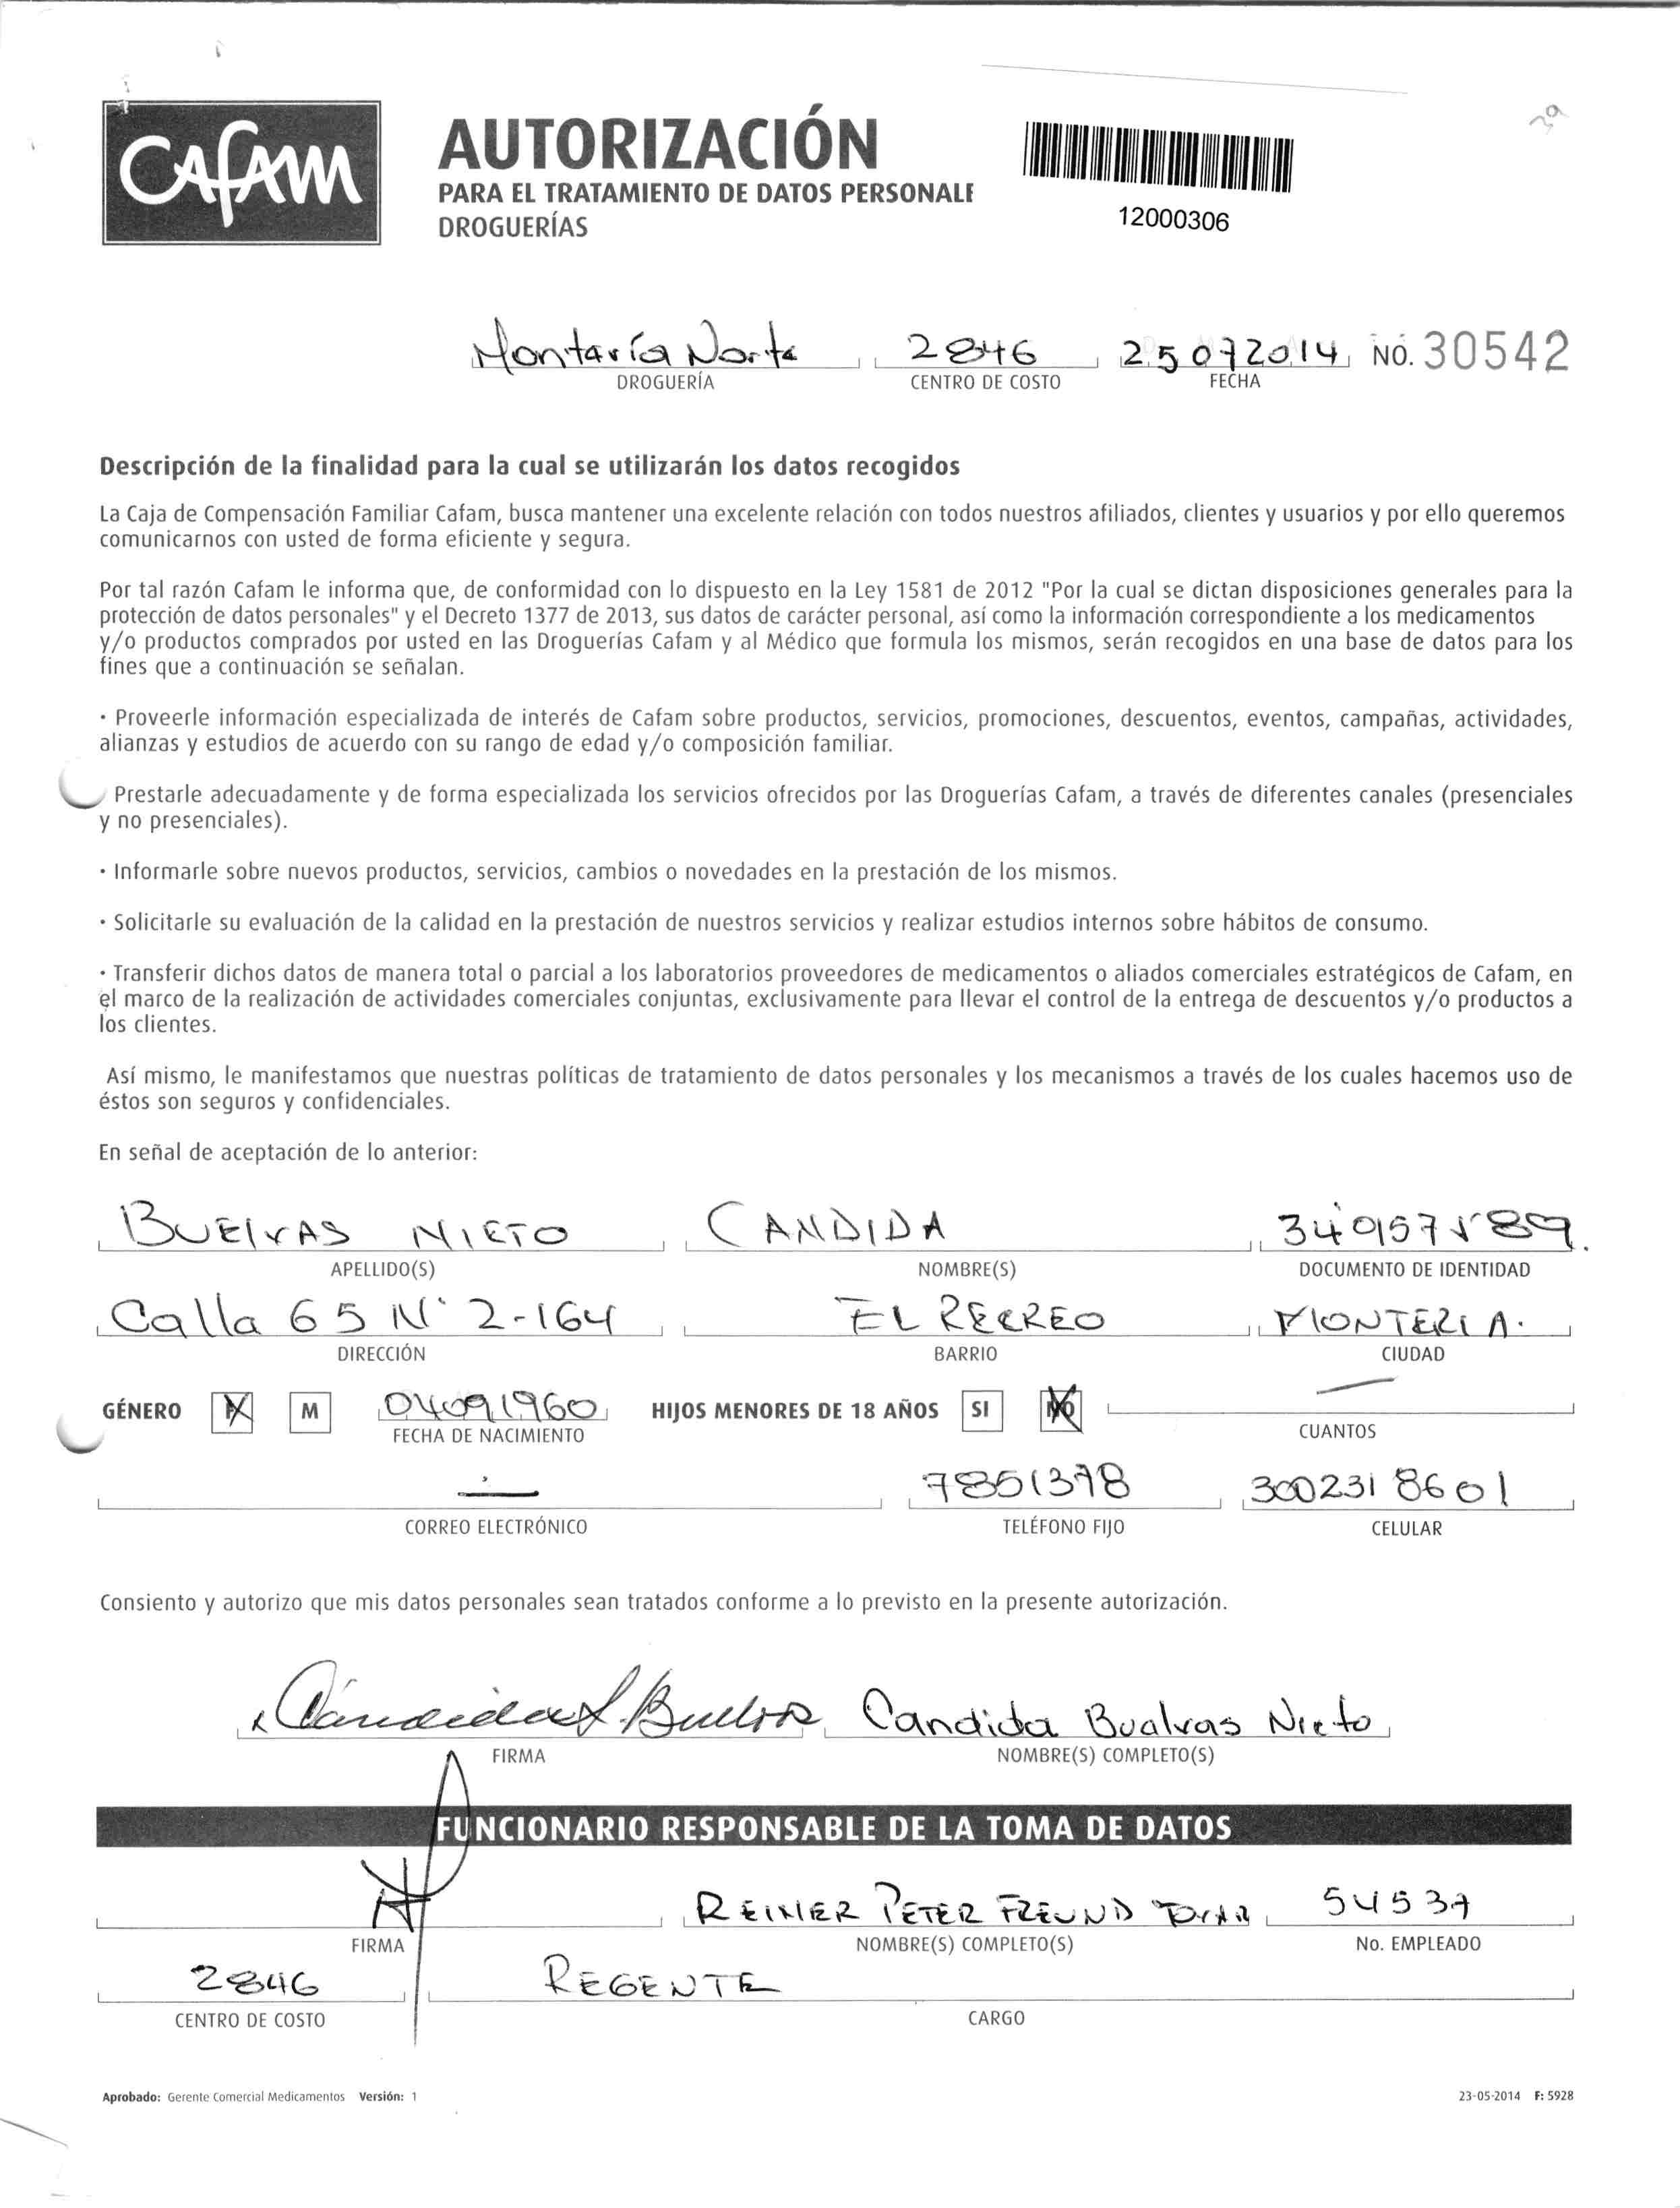 Cafam
AUTORIZACIÓN
PARA EL TRATAMIENTO DE DATOS PERSONALE
DROGUERÍAS
12000306
Montería Norte 2846 25 07 2014 NO. 30542
DROGUERÍA CENTRO DE COSTO FECHA
Descripción de la finalidad para la cual se utilizarán los datos recogidos
La Caja de Compensación Familiar Cafam, busca mantener una excelente relación con todos nuestros afiliados, clientes y usuarios y por ello queremos
comunicarnos con usted de forma eficiente y segura.
Por tal razón Cafam le informa que, de conformidad con lo dispuesto en la Ley 1581 de 2012 "Por la cual se dictan disposiciones generales para la
protección de datos personales" y el Decreto 1377 de 2013, sus datos de carácter personal, así como la información correspondiente a los medicamentos
y/o productos comprados por usted en las Droguerías Cafam y al Médico que formula los mismos, serán recogidos en una base de datos para los
fines que a continuación se señalan.
· Proveerle información especializada de interés de Cafam sobre productos, servicios, promociones, descuentos, eventos, campañas, actividades,
alianzas y estudios de acuerdo con su rango de edad y/o composición familiar.
Prestarle adecuadamente y de forma especializada los servicios ofrecidos por las Droguerías Cafam, a través de diferentes canales (presenciales
y no presenciales).
· Informarle sobre nuevos productos, servicios, cambios o novedades en la prestación de los mismos.
· Solicitarle su evaluación de la calidad en la prestación de nuestros servicios y realizar estudios internos sobre hábitos de consumo.
· Transferir dichos datos de manera total o parcial a los laboratorios proveedores de medicamentos o aliados comerciales estratégicos de Cafam, en
el marco de la realización de actividades comerciales conjuntas, exclusivamente para llevar el control de la entrega de descuentos y/o productos a
los clientes.
Así mismo, le manifestamos que nuestras políticas de tratamiento de datos personales y los mecanismos a través de los cuales hacemos uso de
éstos son seguros y confidenciales.
En señal de aceptación de lo anterior:
BUELVAS NIETO CANDIDA
APELLIDO(S) NOMBRE(S) DOCUMENTO DE IDENTIDAD
Calle 65 N° 2-164 EL RECREO MONTERIA.
DIRECCIÓN BARRIO CIUDAD
GÉNERO F M 04091960 HIJOS MENORES DE 18 AÑOS SI NO
FECHA DE NACIMIENTO CUANTOS
7851378 3002318601
CORREO ELECTRÓNICO TELÉFONO FIJO CELULAR
Consiento y autorizo que mis datos personales sean tratados conforme a lo previsto en la presente autorización.
Candida Buelvas Candida Buelvas Nieto
FIRMA NOMBRE(S) COMPLETO(S)
FUNCIONARIO RESPONSABLE DE LA TOMA DE DATOS
REINER PETER FREUND 54537
FIRMA NOMBRE(S) COMPLETO(S) No. EMPLEADO
2846 REGENTE
CENTRO DE COSTO CARGO
Aprobado: Gerente Comercial Medicamentos Versión: 1 23-05-2014 F: 5928